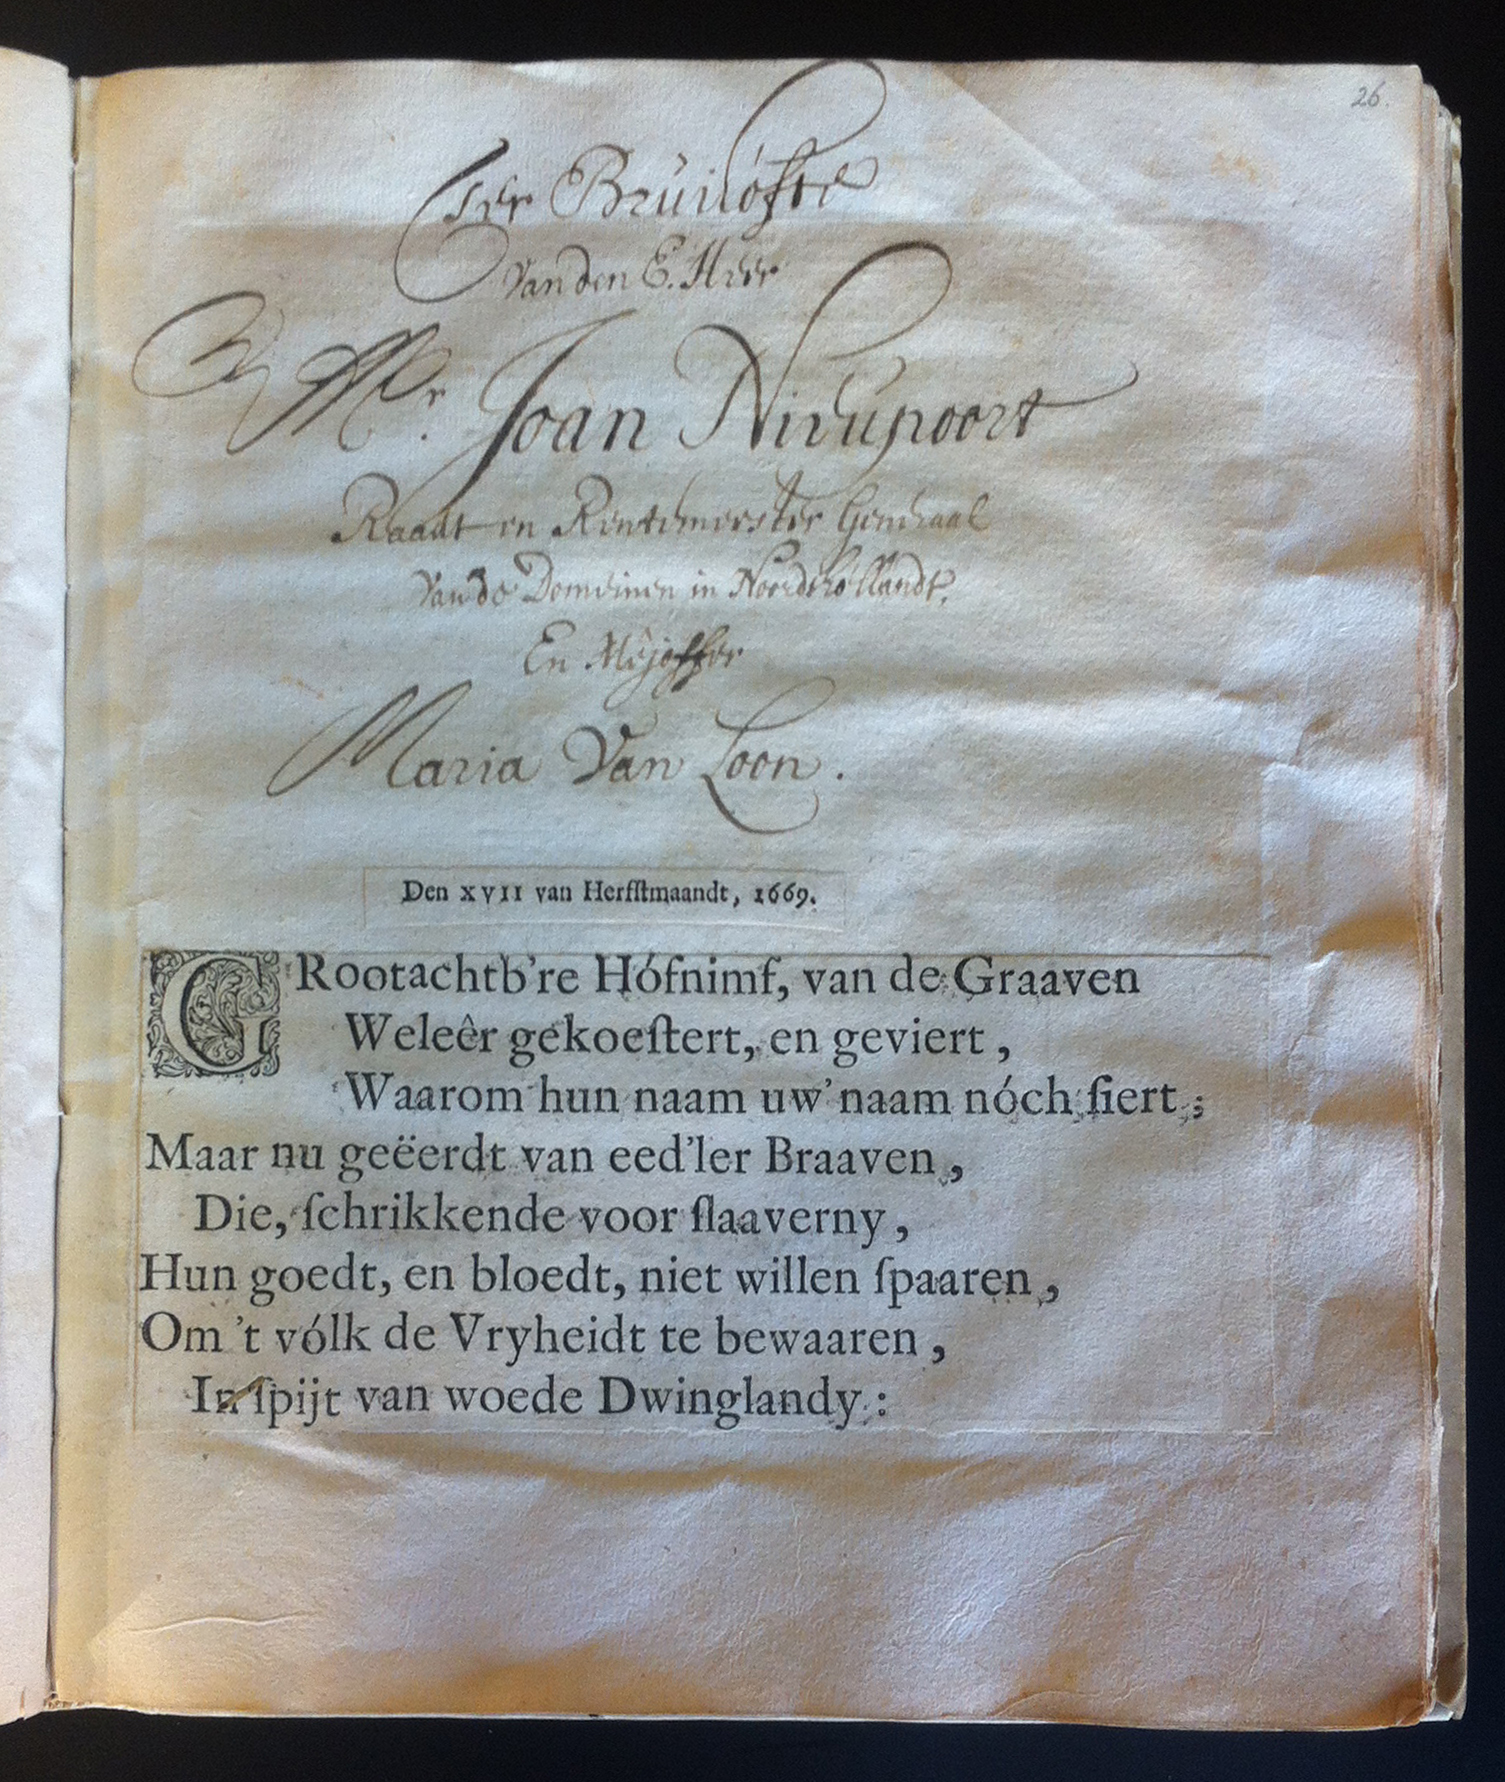 26.
Ter Bruilófte
Van den E. Heer
Mr. Joan Nieupoort
Raadt en Rentemeester Generaal
Van de Domeinen in Noordthollandt,
En Mejoffer
Maria Van Loon.
Den XVII van Herfſtmaandt, 1669.
GRootachtb're Hófnimf, van de Graaven
Weleêr gekoeſtert, en geviert,
Waarom hun naam uw' naam nóch ſiert;
Maar nu geëerdt van eed'ler Braaven,
Die, ſchrikkende voor ſlaaverny,
Hun goedt, en bloedt, niet willen ſpaaren,
Om 't vólk de Vryheidt te bewaaren,
In ſpijt van woede Dwinglandy: